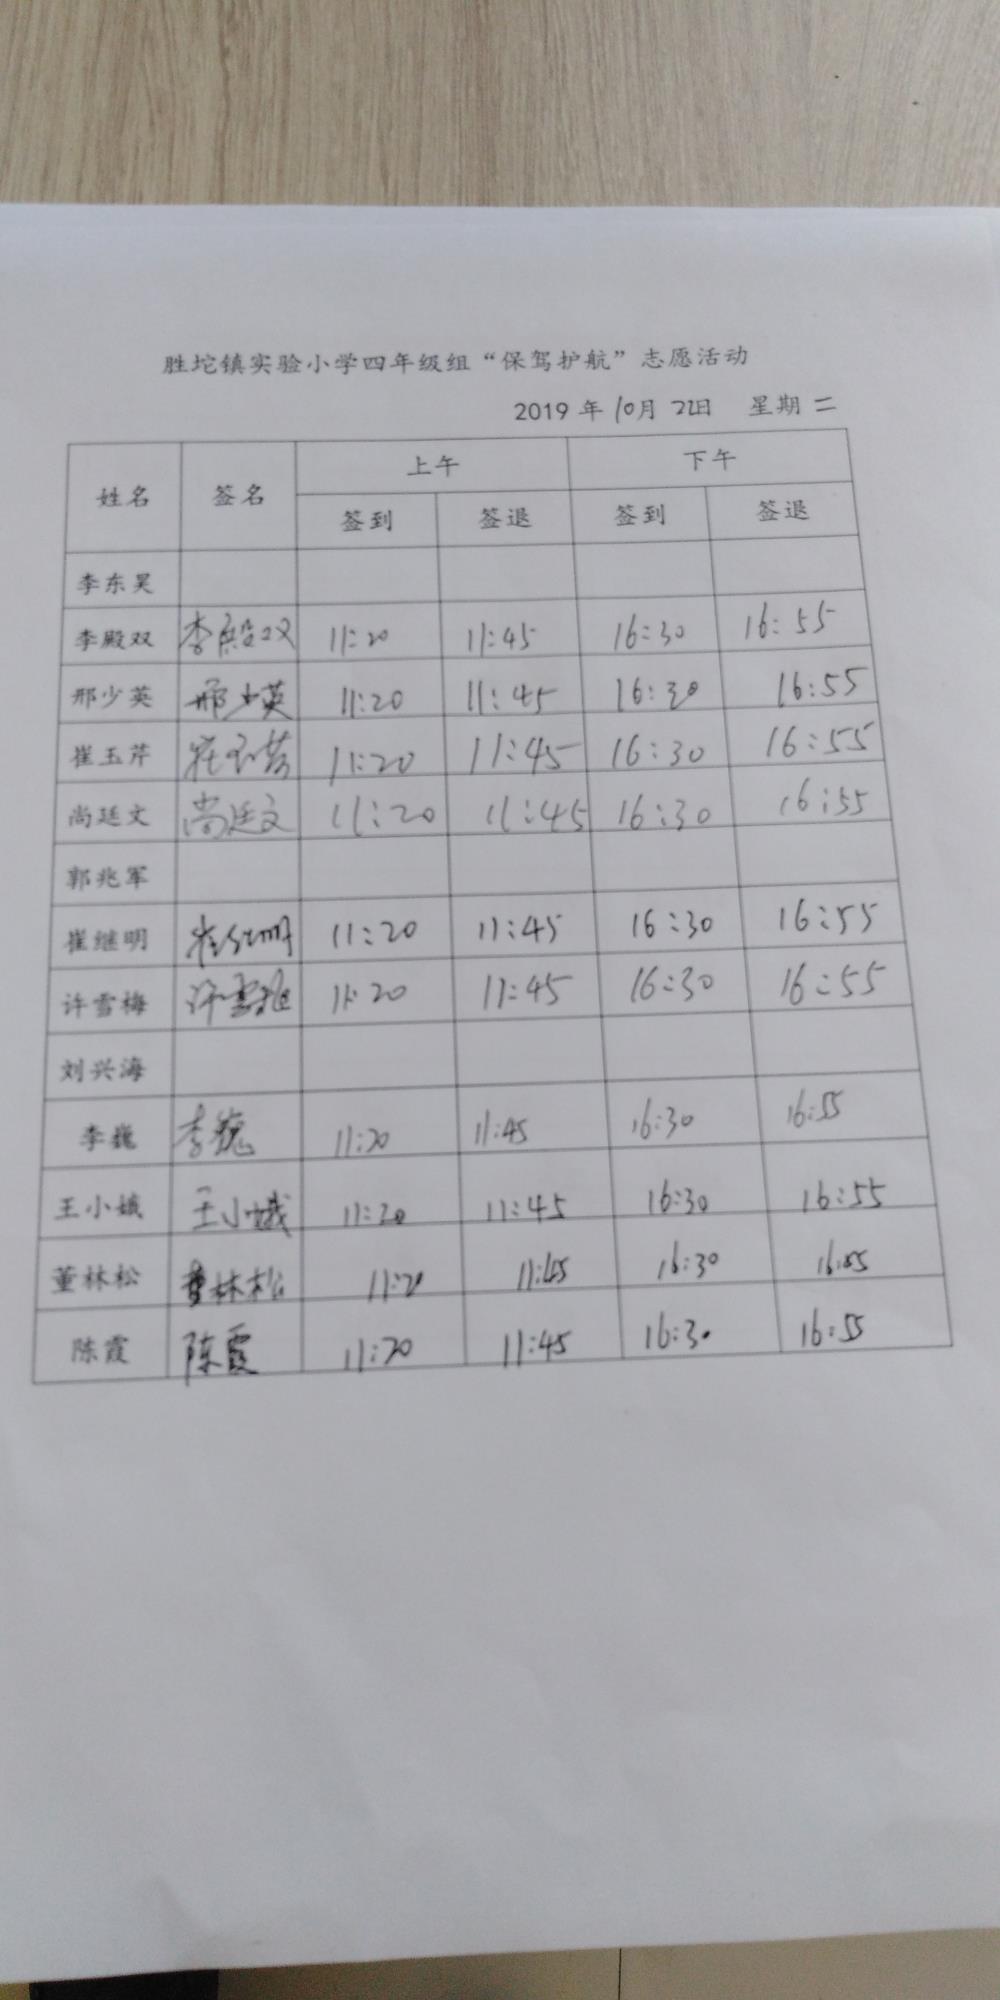 胜坨镇实验小学四年级组“保驾护航”志愿活动
2019 年 10月 22日 星期 二
姓名 签名 上午 下午
签到 签退 签到 签退
李东昊
李殿双 李殿双 11:20 11:45 16:30 16:55
邢少英 邢少英 11:20 11:45 16:30 16:55
崔玉芹 崔玉芹 11:20 11:45 16:30 16:55
尚廷文 尚廷文 11:20 11:45 16:30 16:55
郭兆军
崔继明 崔继明 11:20 11:45 16:30 16:55
许雪梅 许雪梅 11:20 11:45 16:30 16:55
刘兴海
李巍 李巍 11:20 11:45 16:30 16:55
王小娥 王小娥 11:20 11:45 16:30 16:55
董林松 董林松 11:20 11:45 16:30 16:55
陈霞 陈霞 11:20 11:45 16:30 16:55